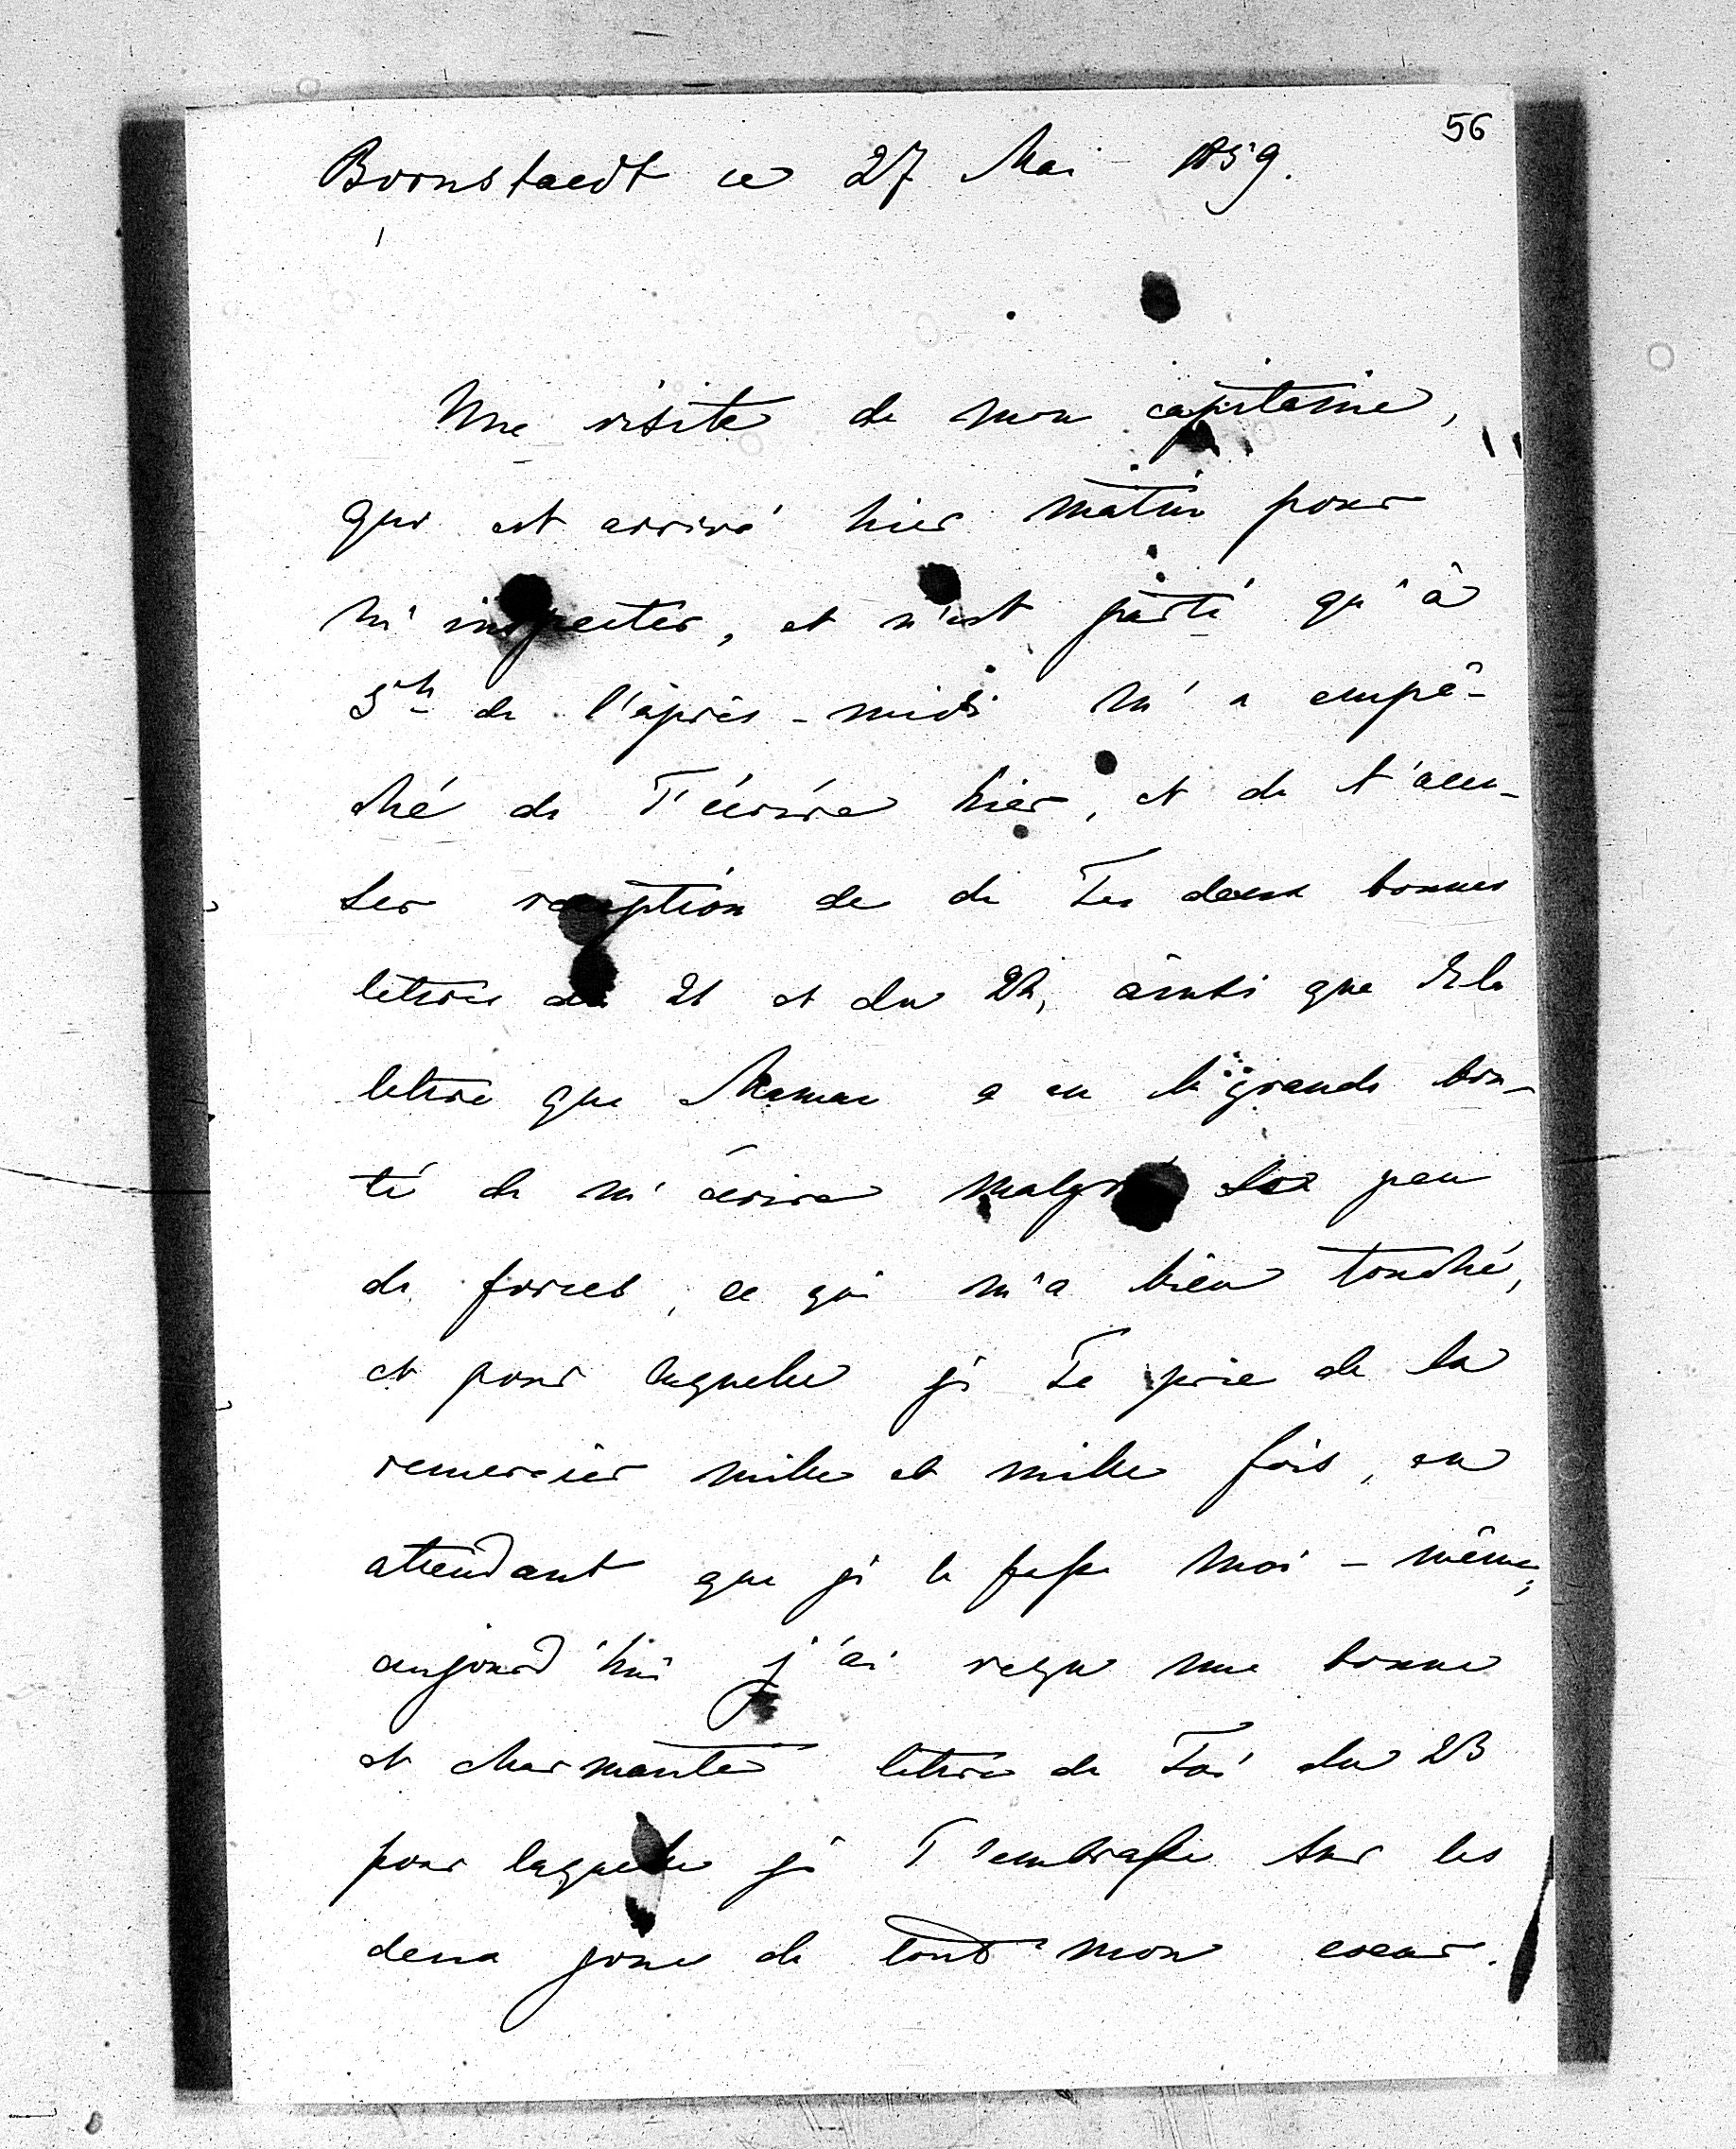 56
Bornstaedt ce 27 Mai 1859.
Une visite de mon capitaine,
qui est arrivé hier matin pour
m'inspecter, et n'est parti qu'à
5h de l'après-midi m'a empê-
ché de T'écrire hier, et de t'accu-
ser reception de de Tes deux bonnes
lettres du 21 et du 22, ainsi que de la
lettre que Maman a eu la grande bon-
té de m'écrire malgré son peu
de forces, ce qui m'a bien touché,
et pour laquelle je Te prie de la
remercier mille et mille fois, en
attendant que je le fasse moi-même;
aujourd'hui j'ai reçu une bonne
et charmante lettre de Toi du 23
pour laquelle je T'embrasse sur les
deux joues de tout mon coeur.